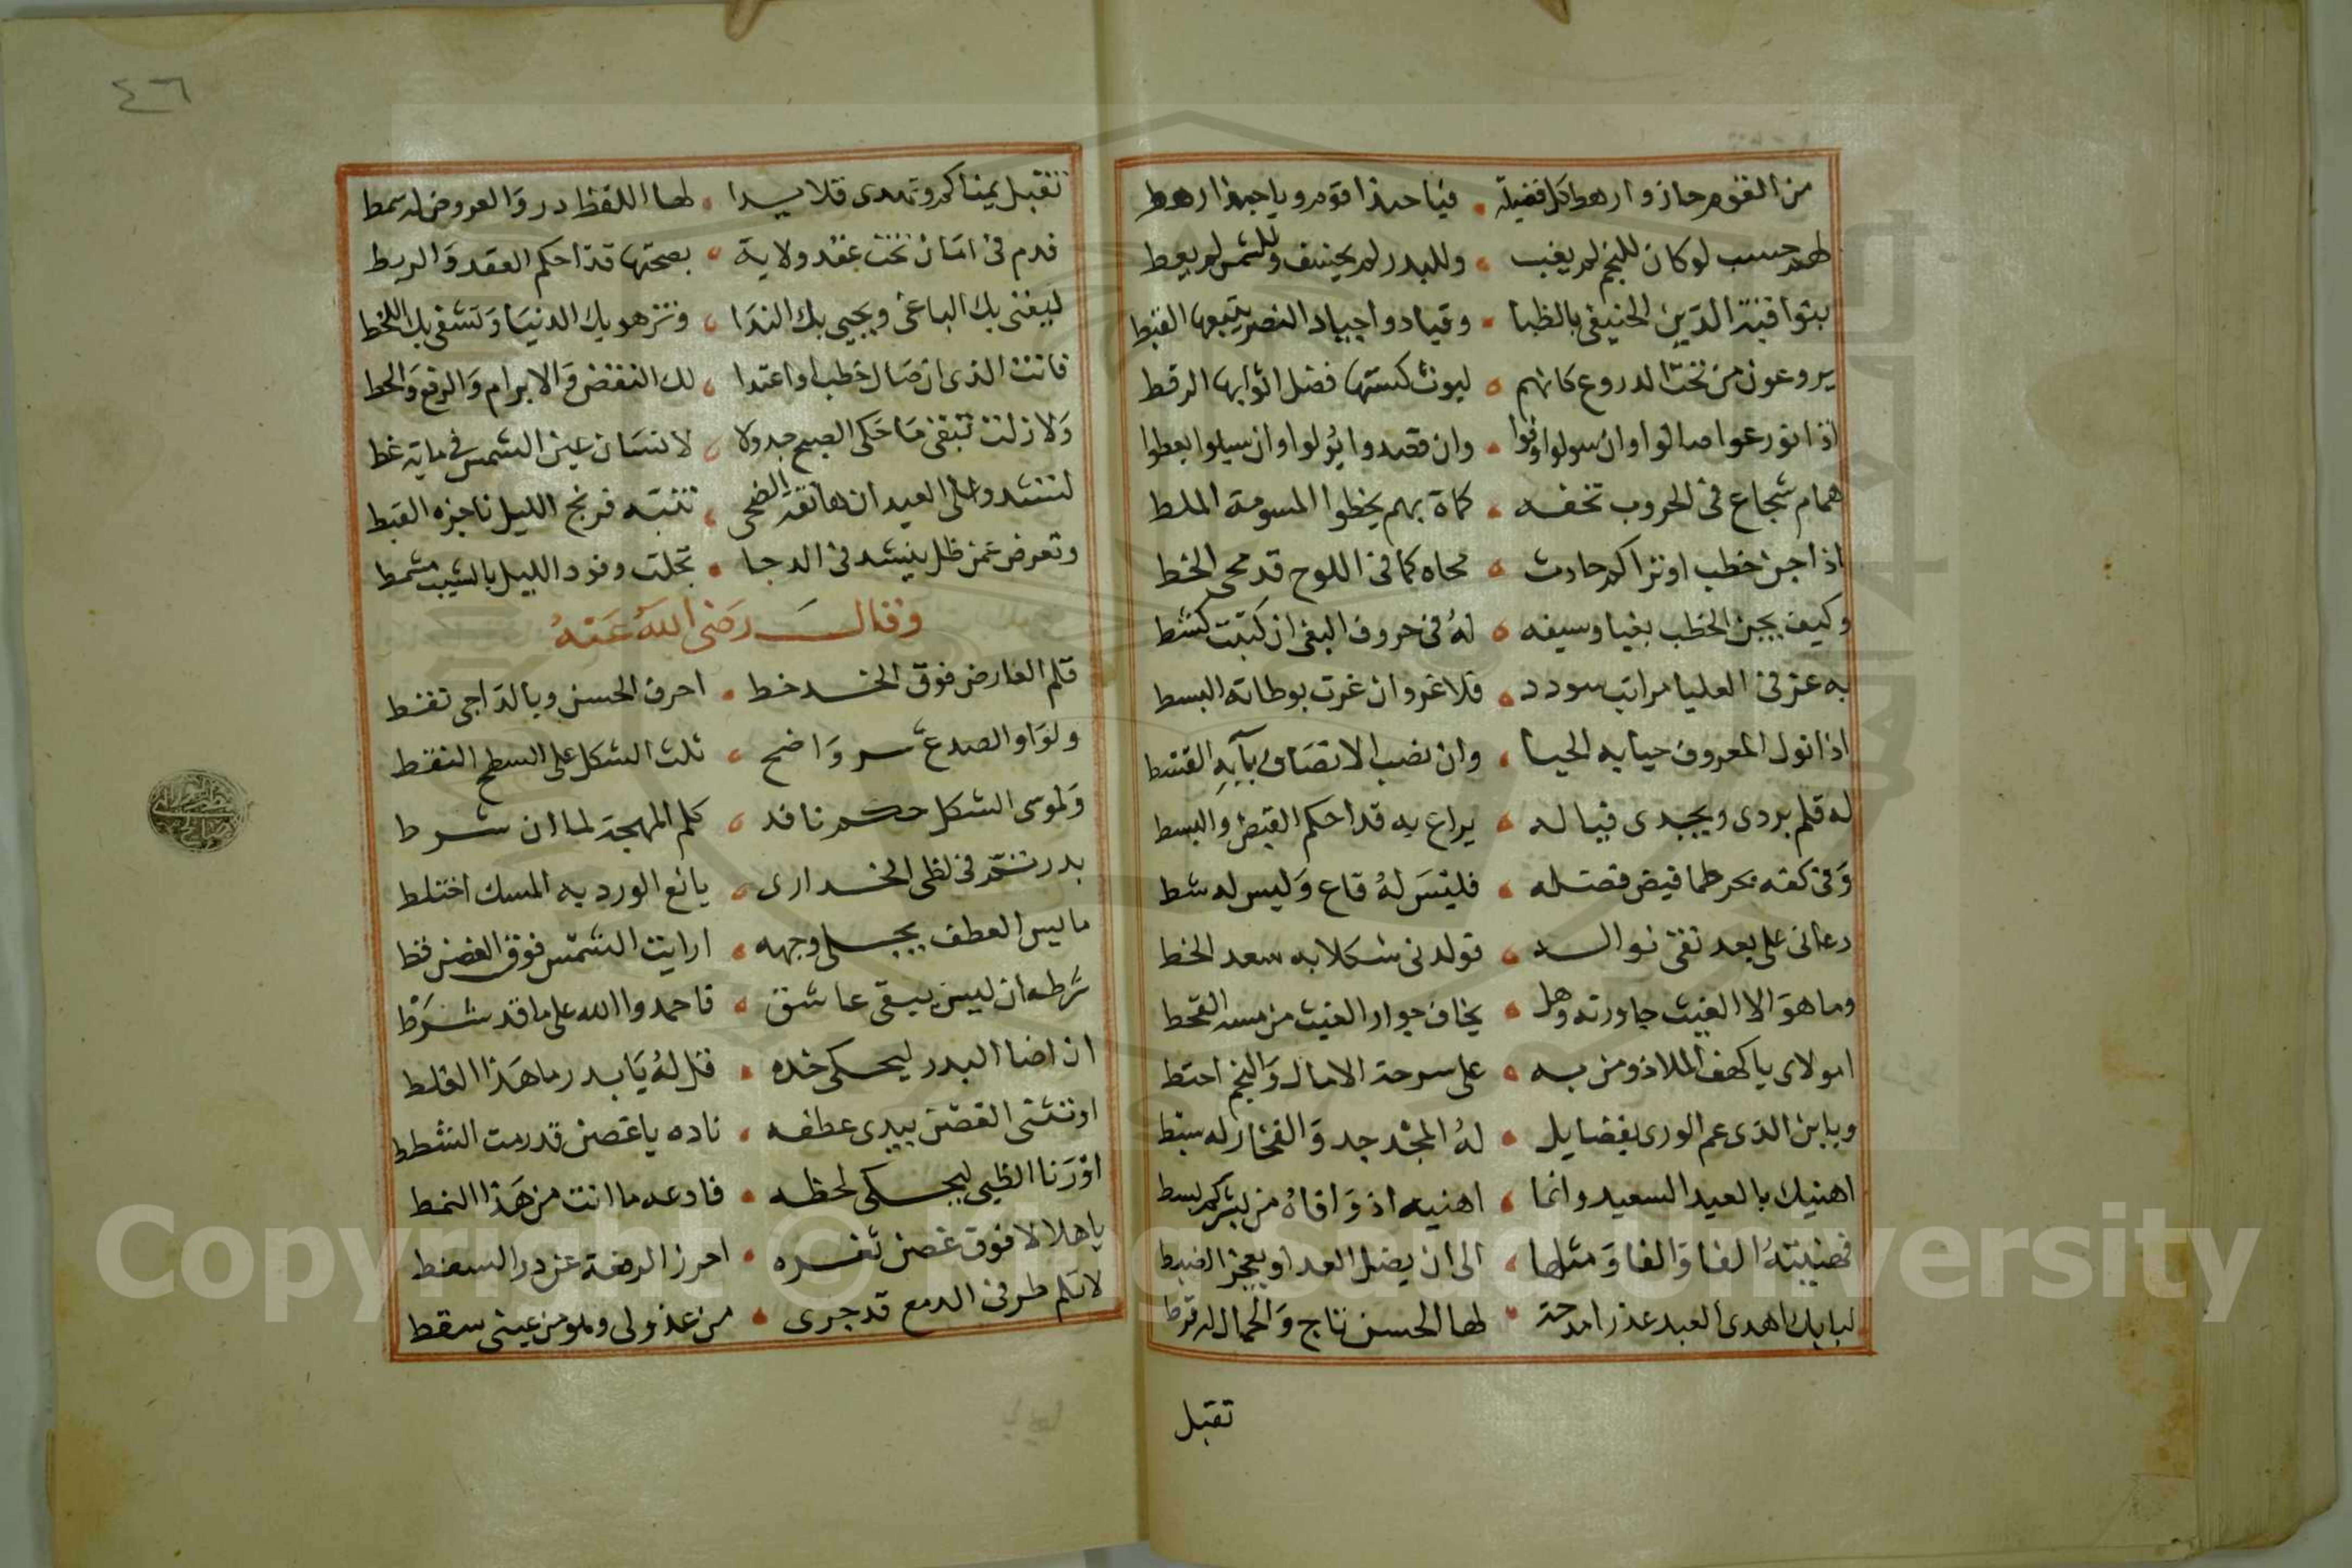 من القوم حازوا رهط كل فضيلة • فيا حبذا قوم ويا حبذا رهط
لهم حسب لو كان للنجم لم يغب • وللبدر لم يخسف وللشمس لم يعط
بنوا قبة الدين الحنيفي بالظبا • وقادوا جياد النصر يتبعها القبط
يروعون من تحت الدروع كانهم • ليوث كستها فضل اثوابها الرقط
اذا نورعوا صالوا وان سولوا وفوا • وان قصدوا يولوا وان سيلوا يعطوا
همام شجاع في الحروب تحفه • كماة بهم يخطوا المسومة الملط
اذا جن خطب او تراكم حادث • محاه كما في اللوح قد محي الخط
وكيف يجن الخطب بغيا وسيفه • له في حروف البغي ان كتبت كشط
به عز في العليا مراتب سودد • فلا غرو ان غرت بوطاته البسط
اذا نول المعروف حيا به الحيا • وان نصب الانصاف بآيه القسط
له قلم يردي ويجدي فيا له • يراع به قد احكم القبض والبسط
وفي كفه بحر طما فيض فضله • فليس له قاع وليس له شط
دعاني على بعد نقي نواله • فولدني شكلا به سعد الخط
وما هو الا الغيث جاورته وهل • يخاف جوار الغيث من مسه القحط
امولاي يا كهف الملاذ ومن به • على سرحة الامال والنجم احتط
ويا بن الذي عم الورى بفضايل • له المجد جد والفخار له سبط
اهنيك بالعيد السعيد وانما • اهنيه اذ وافاه من بشركم بسط
فهنيته الفا والفا ومثلها • الى ان يضل العد او يعجز الضبط
لبابك اهدى العبد عذرا مدحة • لها الحسن تاج والجمال له قرط
تقبل
٤٦
تقبل يمناكم وتهدى قلايدا • لها اللفظ در والعروض له سمط
فدم في امان تحت عقد ولاية • بصحتها قد احكم العقد والربط
ليفنى بك الباغي ويحيى بك الندا • وتزهو بك الدنيا وتشقى بك اللخط
فانت الذي ان صال خطب او اعتدا • لك النقض والابرام والرفع والحط
ولا زلت تبقى ما حكى الصبح جدولا • لانسان عين الشمس في مايه غط
لتنشد والى العيد ان هاتف الضحى • تنبه فزنج الليل ناجزه القبط
وتعرض عمن ظل ينشد في الدجا • تجلت وفود الليل بالشيب مشمط
وقال رضى الله عنه
قلم العارض فوق الخد خط • احرف الحسن وبالداجي نقط
ولواو الصدغ سر واضح • ثلث الشكل على السطح النقط
ولموسى الشكل حكم نافذ • كلم المهجة لما ان شرط
بدر تم في لظى الخد ارى • يانع الورد به المسك اختلط
مايس العطف يجلي وجهه • ارايت الشمس فوق الغصن قط
شرطه ان ليس يبقى عاشق • فاحمدوا الله على ما قد شرط
ان اضا البدر ليحكي خده • قل له يا بدر ما هذا الغلط
او تثنى الغصن يبدي عطفه • ناده يا غصن قد رمت الشطط
او رنا الظبي ليحكى لحظه • فادعه ما انت من هذا النمط
يا هلالا فوق غصن ثغره • احرز الرفعة عن در السفط
لا تلم طرفي الدمع قد جرى • من عذولي ولو من عيني سقط
Copyright © King Saud University